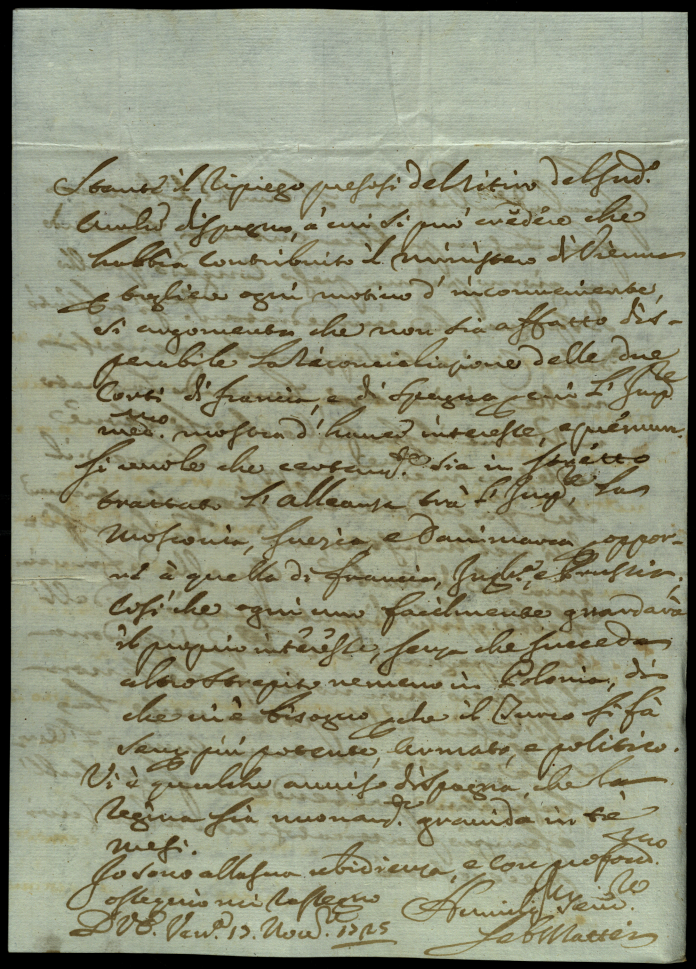 Stante il ripiego presosi del ritiro del sud.o
Amb.r di Spagna, à cui si può credere che
habbia contribuito il ministero di Vienna
togliere ogni motivo d'inconveniente,
si argomenta che non sia affatto dis-
perabile la riconciliazione delle due
Corti di francia, e di Spagna, e in
med.mo mostra d'haver interesse,
si vuole che sia in
trattato l'alleanza trà l'Imp.re, la
Moscovia, Suezia, e Danimarca oppor-
si à quella di francia, Ingh.a, e Prussia.
Così che ogni uno facilmente guardarà
il proprio interesse, senza che succeda
altro strepito nemeno in Polonia, di
che vi è bisogno, che il Turco si fà
semp. più potente, armato, e politico.
Vi è qualche aviso di Spagna, che la
Regina sia nuovam.te gravida in trè
mesi.
Io sono alla sua ubidienza, e con profond.mo
osseguio mi rassegno
D V E. Ven.a 13. Nov.e 1725 Humiliss.o
Seb Mattei